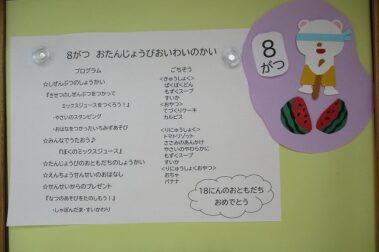 8がつ おたんじょうびおいわいのかい
プログラム
☆しぜんぶつのしょうかい
『きせつのしぜんぶつをつかって
ミックスジュースをつくろう！』
・やさいのスタンピング
・おはなをつかったいろみずあそび
☆みんなでうたおう♪
『ぼくのミックスジュース』
☆たんじょうびのおともだちのしょうかい
☆えんちょうせんせいのおはなし
☆せんせいからのプレゼント
『なつのあそびをたのしもう！』
・しゃぼんだま・すいかわり
ごちそう
<きゅうしょく>
ぱくぱくどん
もずくスープ
すいか
<おやつ>
てづくりケーキ
カルピス
<りにゅうしょく>
トマトリゾット
ささみのあんかけ
やさいのやわらかに
もずくスープ
すいか
<りにゅうしょくおやつ>
おちゃ
バナナ
18にんのおともだち
おめでとう
8
がつ